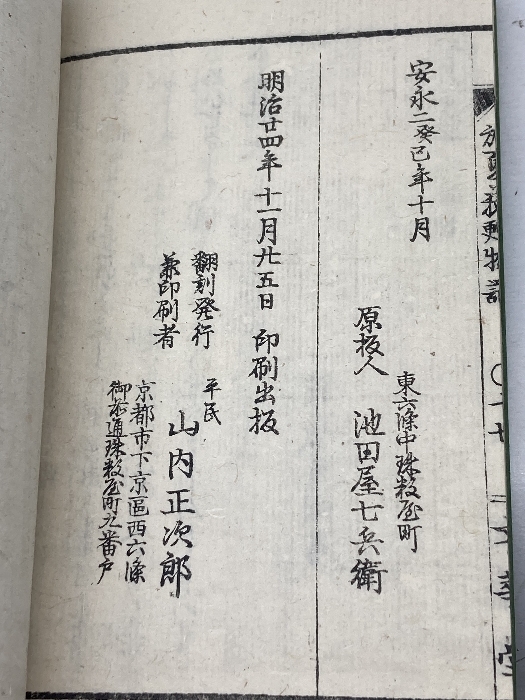 安永二癸巳年十月
東六條中珠数屋町
原板人 池田屋七兵衛
明治廿四年十一月廿五日 印刷出板
翻刻発行
兼印刷者
平民
山内正次郎
京都市下京區西六條
御前通珠数屋町九番戸